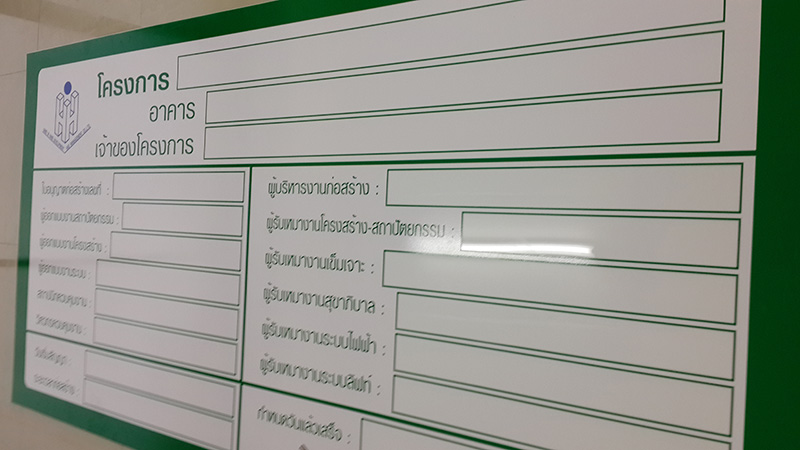 โครงการ
อาคาร
เจ้าของโครงการ
ใบอนุญาตก่อสร้างเลขที่ :
ผู้ออกแบบงานสถาปัตยกรรม :
ผู้ออกแบบงานโครงสร้าง :
ผู้ออกแบบงานระบบ :
สถาปนิกควบคุมงาน :
วิศวกรควบคุมงาน :
วันเริ่มสัญญา :
ระยะเวลาก่อสร้าง :
ผู้บริหารงานก่อสร้าง :
ผู้รับเหมางานโครงสร้าง-สถาปัตยกรรม :
ผู้รับเหมางานเข็มเจาะ :
ผู้รับเหมางานสุขาภิบาล :
ผู้รับเหมางานระบบไฟฟ้า :
ผู้รับเหมางานระบบลิฟท์ :
กำหนดวันแล้วเสร็จ :